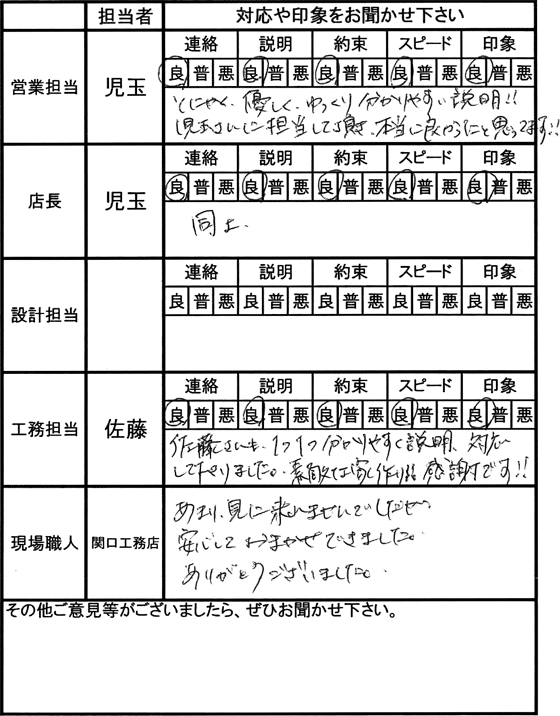 担当者 対応や印象をお聞かせ下さい
営業担当 児玉
連絡 説明 約束 スピード 印象
良 普 悪 良 普 悪 良 普 悪 良 普 悪 良 普 悪
とにかく、優しく、ゆっくり分かりやすい説明!!
児玉さんに担当して頂き、本当に良かったと思ってます!!
店長 児玉
連絡 説明 約束 スピード 印象
良 普 悪 良 普 悪 良 普 悪 良 普 悪 良 普 悪
同上.
設計担当
連絡 説明 約束 スピード 印象
良 普 悪 良 普 悪 良 普 悪 良 普 悪 良 普 悪
工務担当 佐藤
連絡 説明 約束 スピード 印象
良 普 悪 良 普 悪 良 普 悪 良 普 悪 良 普 悪
佐藤さんも、1つ1つ分かりやすく説明、対応
して下さりました。素敵な家作り!! 感謝です!!
現場職人 関口工務店
あまり、見に来れませんでしたが
安心しておまかせできました。
ありがとうございました。
その他ご意見等がございましたら、ぜひお聞かせ下さい。